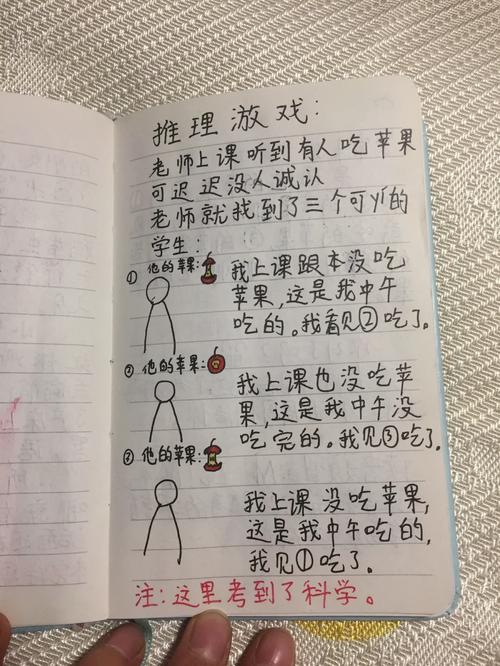 推理游戏:
老师上课听到有人吃苹果
可迟迟没人诚认
老师就找到了三个可yí的
学生:
① 他的苹果:
我上课跟本没吃
苹果,这是我中午
吃的。我看见②吃了。
② 他的苹果:
我上课也没吃苹
果,这是我中午没
吃完的。我见③吃了。
② 他的苹果:
我上课没吃苹果,
这是我中午吃的,
我见①吃了。
注:这里考到了科学。